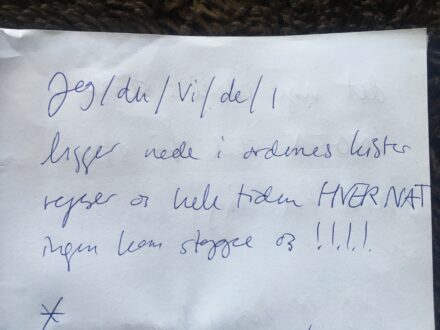 Jeg/du/vi/de/I
ligger nede i ordenes kister
rejser os hele tiden HVER NAT
ingen kan stoppe os !!!!!
*